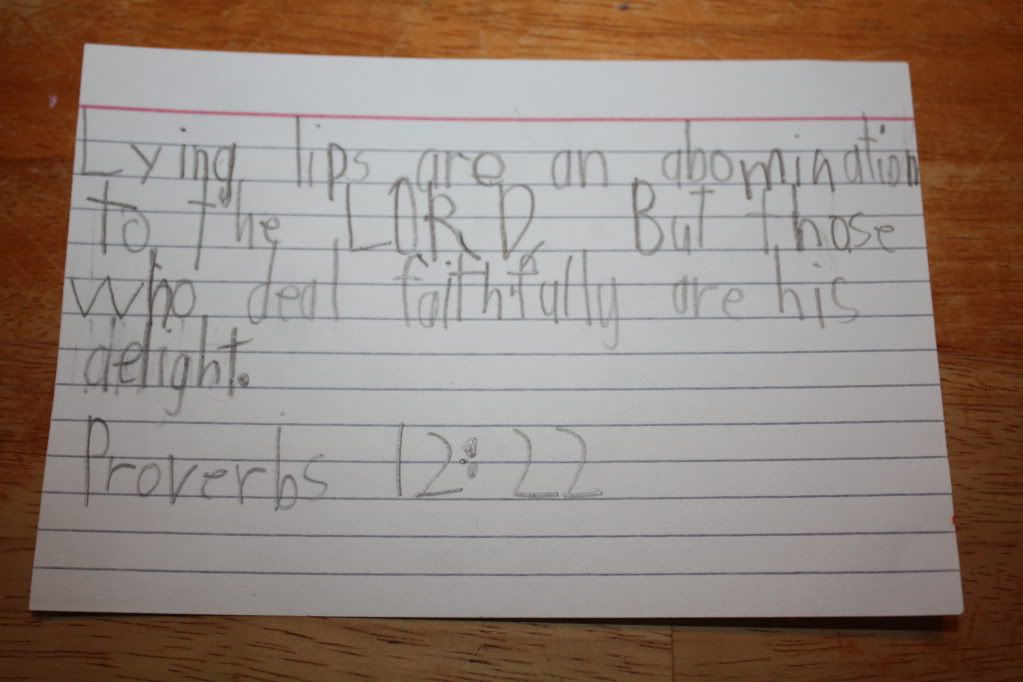 Lying lips are an abomination
to the LORD, But those
who deal faithfully are his
delight.
Proverbs 12:22